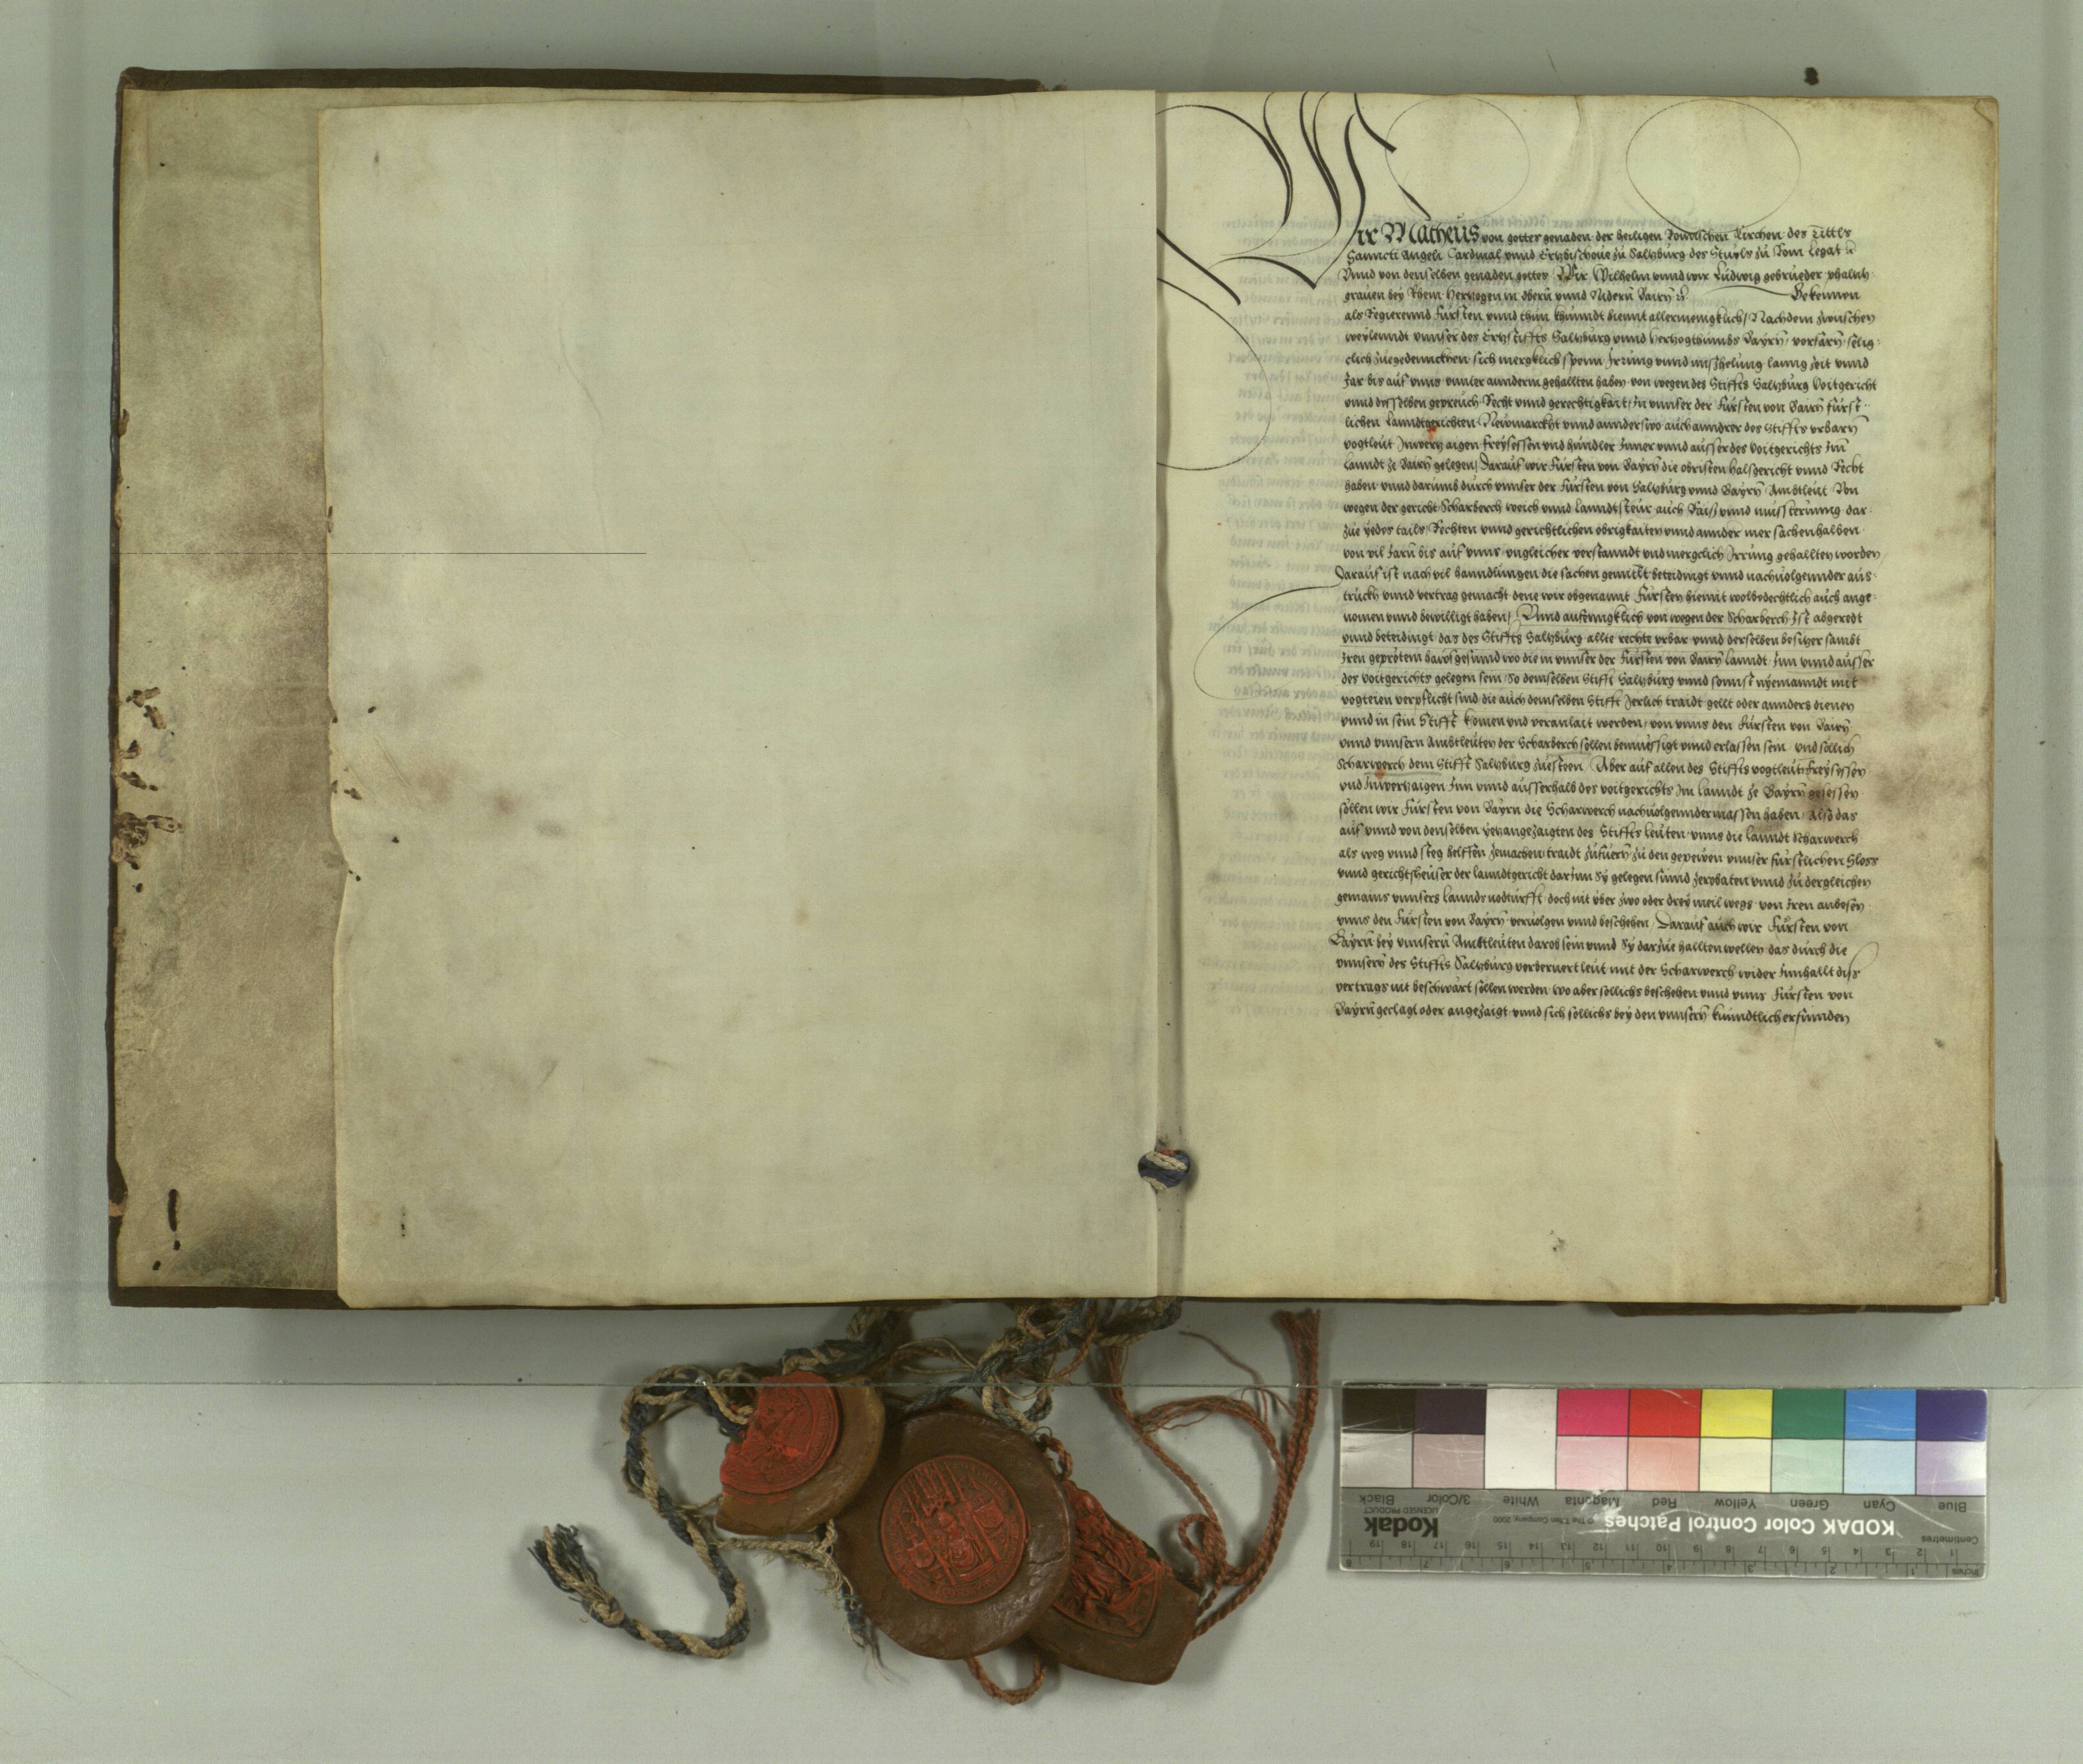 Wir Matheus von gottes genaden der heiligen Römischen Kirchen des Tittls
Sanncti Angeli Cardinal vnnd Ertzbischoue zů Saltzburg des Stuels zů Rom Legat ꝛc
Vnnd von denselben genaden gottes Wir Wilhelm vnnd wir Ludwig gebrueder phaltz
grauen bey Rhein Hertzogen in Obern vnnd Nidern Bairn ꝛc Bekennen
als Regierennd Fürsten vnnd thun khundt hiemit allermenigklich Nachdem zwischen
weylenndt vnnser des Ertzstiffts Saltzburg vnnd Hertzogthumbs Bayrn vorfarn selig
clich zuegedennckhen sich mergklich spenn Irrung vnnd misshelung lanng zeit vnnd
Jar bis auf vnns vnnter annderm gehallten haben von wegen des Stiffts Saltzburg Voitgericht
vnnd desselben gepreuch Recht vnnd gerechtigkait In vnnser der Fürsten von Bairn fürst
lichen Lanndtgerichten Newmarckht vnnd annderswo auch anndrer des Stiffts vrbarn
vogtleut Inwertz aigen freysessen vnd handler Inner vnnd ausser des Voitgerichts Im
lanndt ze Bairn gelegen Darauf wir Fürsten von Bayrn die obristen halsgericht vnnd Recht
haben vnnd darumb durch vnnser der Fürsten von Saltzburg vnnd Bayrn Ambtleut Von
wegen der gericht Scharberch weich vnnd lanndtsteur auch Raiß vnnd musterung dar
zue yedes tails Rechten vnnd gerichtlichen obrigkaiten vnnd annder mer sachenhalben
von vil Jarn bis auf vnns vngleicher verstanndt vnd mergclich Irrung gehallten worden
Darauf ist nach vil hanndlungen die sachen gemilt beteidingt vnnd nachuolgennder aus
truckh vnnd vertrag gemacht dene wir obgenannt Fürsten hiemit wolbedechtlich auch ange
nomen vnnd bewilligt haben Vnnd anfenngklich von wegen der Scharberch Ist abgeredt
vnnd beteidingt das des Stiffts Saltzburg allte rechte vrbar vnnd derselben besitzer sambt
Iren geprotem hawsgesind wo die in vnnser der Fürsten von Bairn lanndt Inn vnnd ausser
des Voitgerichts gelegen sein So demselben Stifft Saltzburg vnnd sonnst nyemanndt mit
vogteien verpflicht sind die auch demselben Stifft Jerlich traidt gellt oder annders dienen
vnnd in sein Stifft komen vnd veranlait werden von vnns den Fürsten von Bairn
vnnd vnnsern Ambtleuten der Scharberch sollen bemüssigt vnnd erlassen sein vnd sollich
Scharwerch dem Stifft Saltzburg zuesteen Aber auf allen des Stiffts vogtleut Freysessen
vnd Inwertzaigen Inn vnnd ausserhalb des voitgerichts Im lanndt ze Bayrn gesessen
sollen wir Fürsten von Bayrn die Scharwerch nachuolgenndermassen haben Also das
auf vnnd von denselben yetzangezaigten des Stiffts leuten vnns die lanndt Scharwerch
als weg vnnd steg helffen zemachen traidt zufuern zu den gepewen vnnser fürstlichen Sloss
vnnd gerichtsheuser der lanndtgericht darinn sy gelegen sind zerobaten vnnd zu dergleichen
gemains vnnsers lannds nodturfft doch nit vber zwo oder drey meil wegs von Iren anbosen
vnns den Fürsten von Bayrn veruolgen vnnd beschehen Darauf auch wir Fürsten von
Bayrn bey vnnsern Ambtleuten darob sein vnnd sy darzue hallten wellen das durch die
vnnsern des Stiffts Saltzburg vorberuert leut mit der Scharwerch wider Innhallt diss
vertrags nit beschwärt sollen werden wo aber sollichs beschehen vnnd vnns Fürsten von
Bayrn geclagt oder angezaigt vnnd sich sollichs bey den vnnsern kunndtlich erfunden
KODAK Color Control Patches
Kodak
LICENSED PRODUCT
© The Tiffen Company, 2000
Blue Cyan Green Yellow Red Magenta White 3/Color Black
Centimetres 1 2 3 4 5 6 7 8 9 10 11 12 13 14 15 16 17 18 19
Inches 1 2 3 4 5 6 7 8